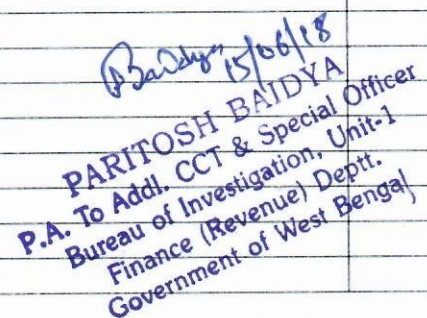 PBaidya 15/06/18
PARITOSH BAIDYA
P.A. To Addl. CCT & Special Officer
Bureau of Investigation, Unit-1
Finance (Revenue) Deptt.
Government of West Bengal